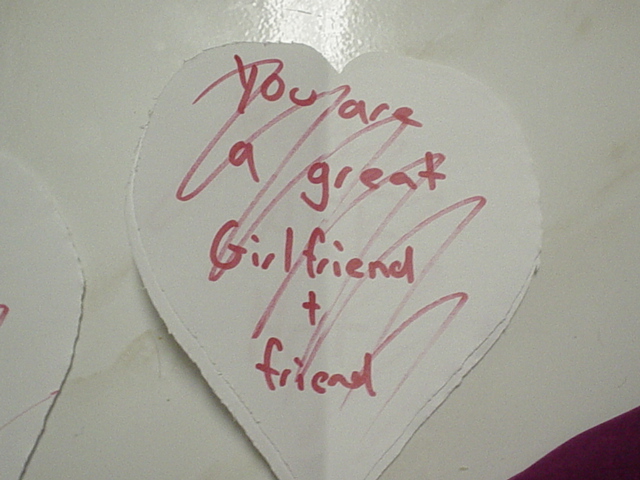 You are
a great
Girlfriend
+
friend